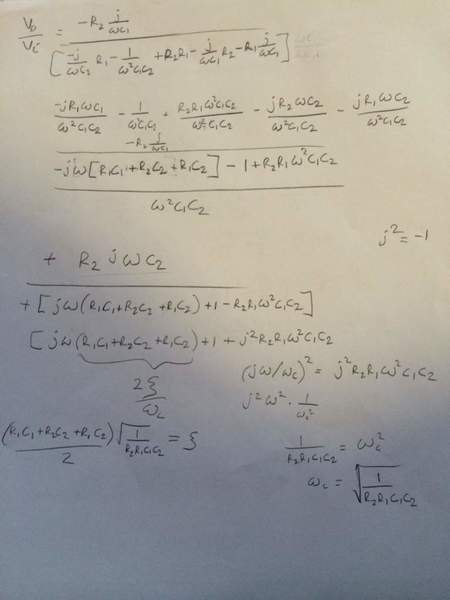 Vo/Vi = -R2 j/ωC1
[-j/ωC2 R1 - 1/ω²C1C2 + R2R1 - j/ωC1 R2 - R1 j/ωC1]
-jR1ωC1/ω²C1C2 - 1/ω²C1C1 + R2R1ω²C1C2/ω²C1C2 - jR2ωC2/ω²C1C2 - jR1ωC2/ω²C1C2
-R2 j/ωC1
-jω[R1C1+R2C2+R1C2] - 1 + R2R1ω²C1C2
ω²C1C2
j² = -1
+ R2 jωC2
+ [jω(R1C1+R2C2+R1C2) + 1 - R2R1ω²C1C2]
[jω(R1C1+R2C2+R1C2) + 1 + j²R2R1ω²C1C2
2ξ/ωc
(jω/ωc)² = j²R2R1ω²C1C2
j²ω² · 1/ωc²
(R1C1+R2C2+R1C2)/2 √(1/R2R1C1C2) = ξ
1/R2R1C1C2 = ωc²
ωc = √(1/R2R1C1C2)